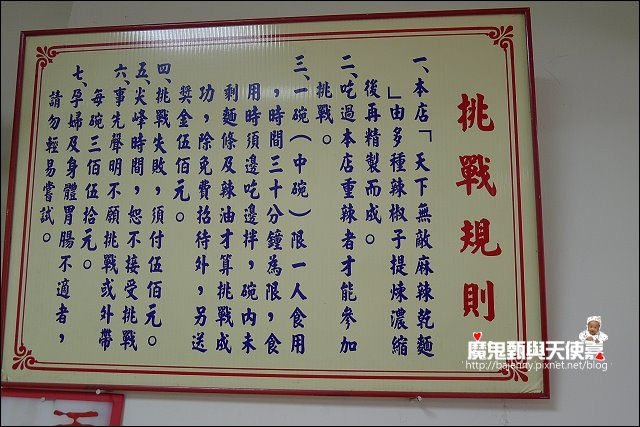 挑戰規則
一、本店「天下無敵麻辣乾麵
」由多種辣椒子提煉濃縮
後再精製而成。
二、吃過本店重辣者才能參加
挑戰。
三、一碗（中碗）限一人食用
，時間三十分鐘為限，食
用時須邊吃邊拌，碗內未
剩麵條及辣油才算挑戰成
功，除免費招待外，另送
獎金伍佰元。
四、挑戰失敗，須付伍佰元。
五、尖峰時間，恕不接受挑戰
六、事先聲明不願挑戰或外帶
每碗三佰伍拾元。
七、孕婦及身體胃腸不適者，
請勿輕易嘗試。
魔鬼甄與天使嘉
http://bajenny.pixnet.net/blog